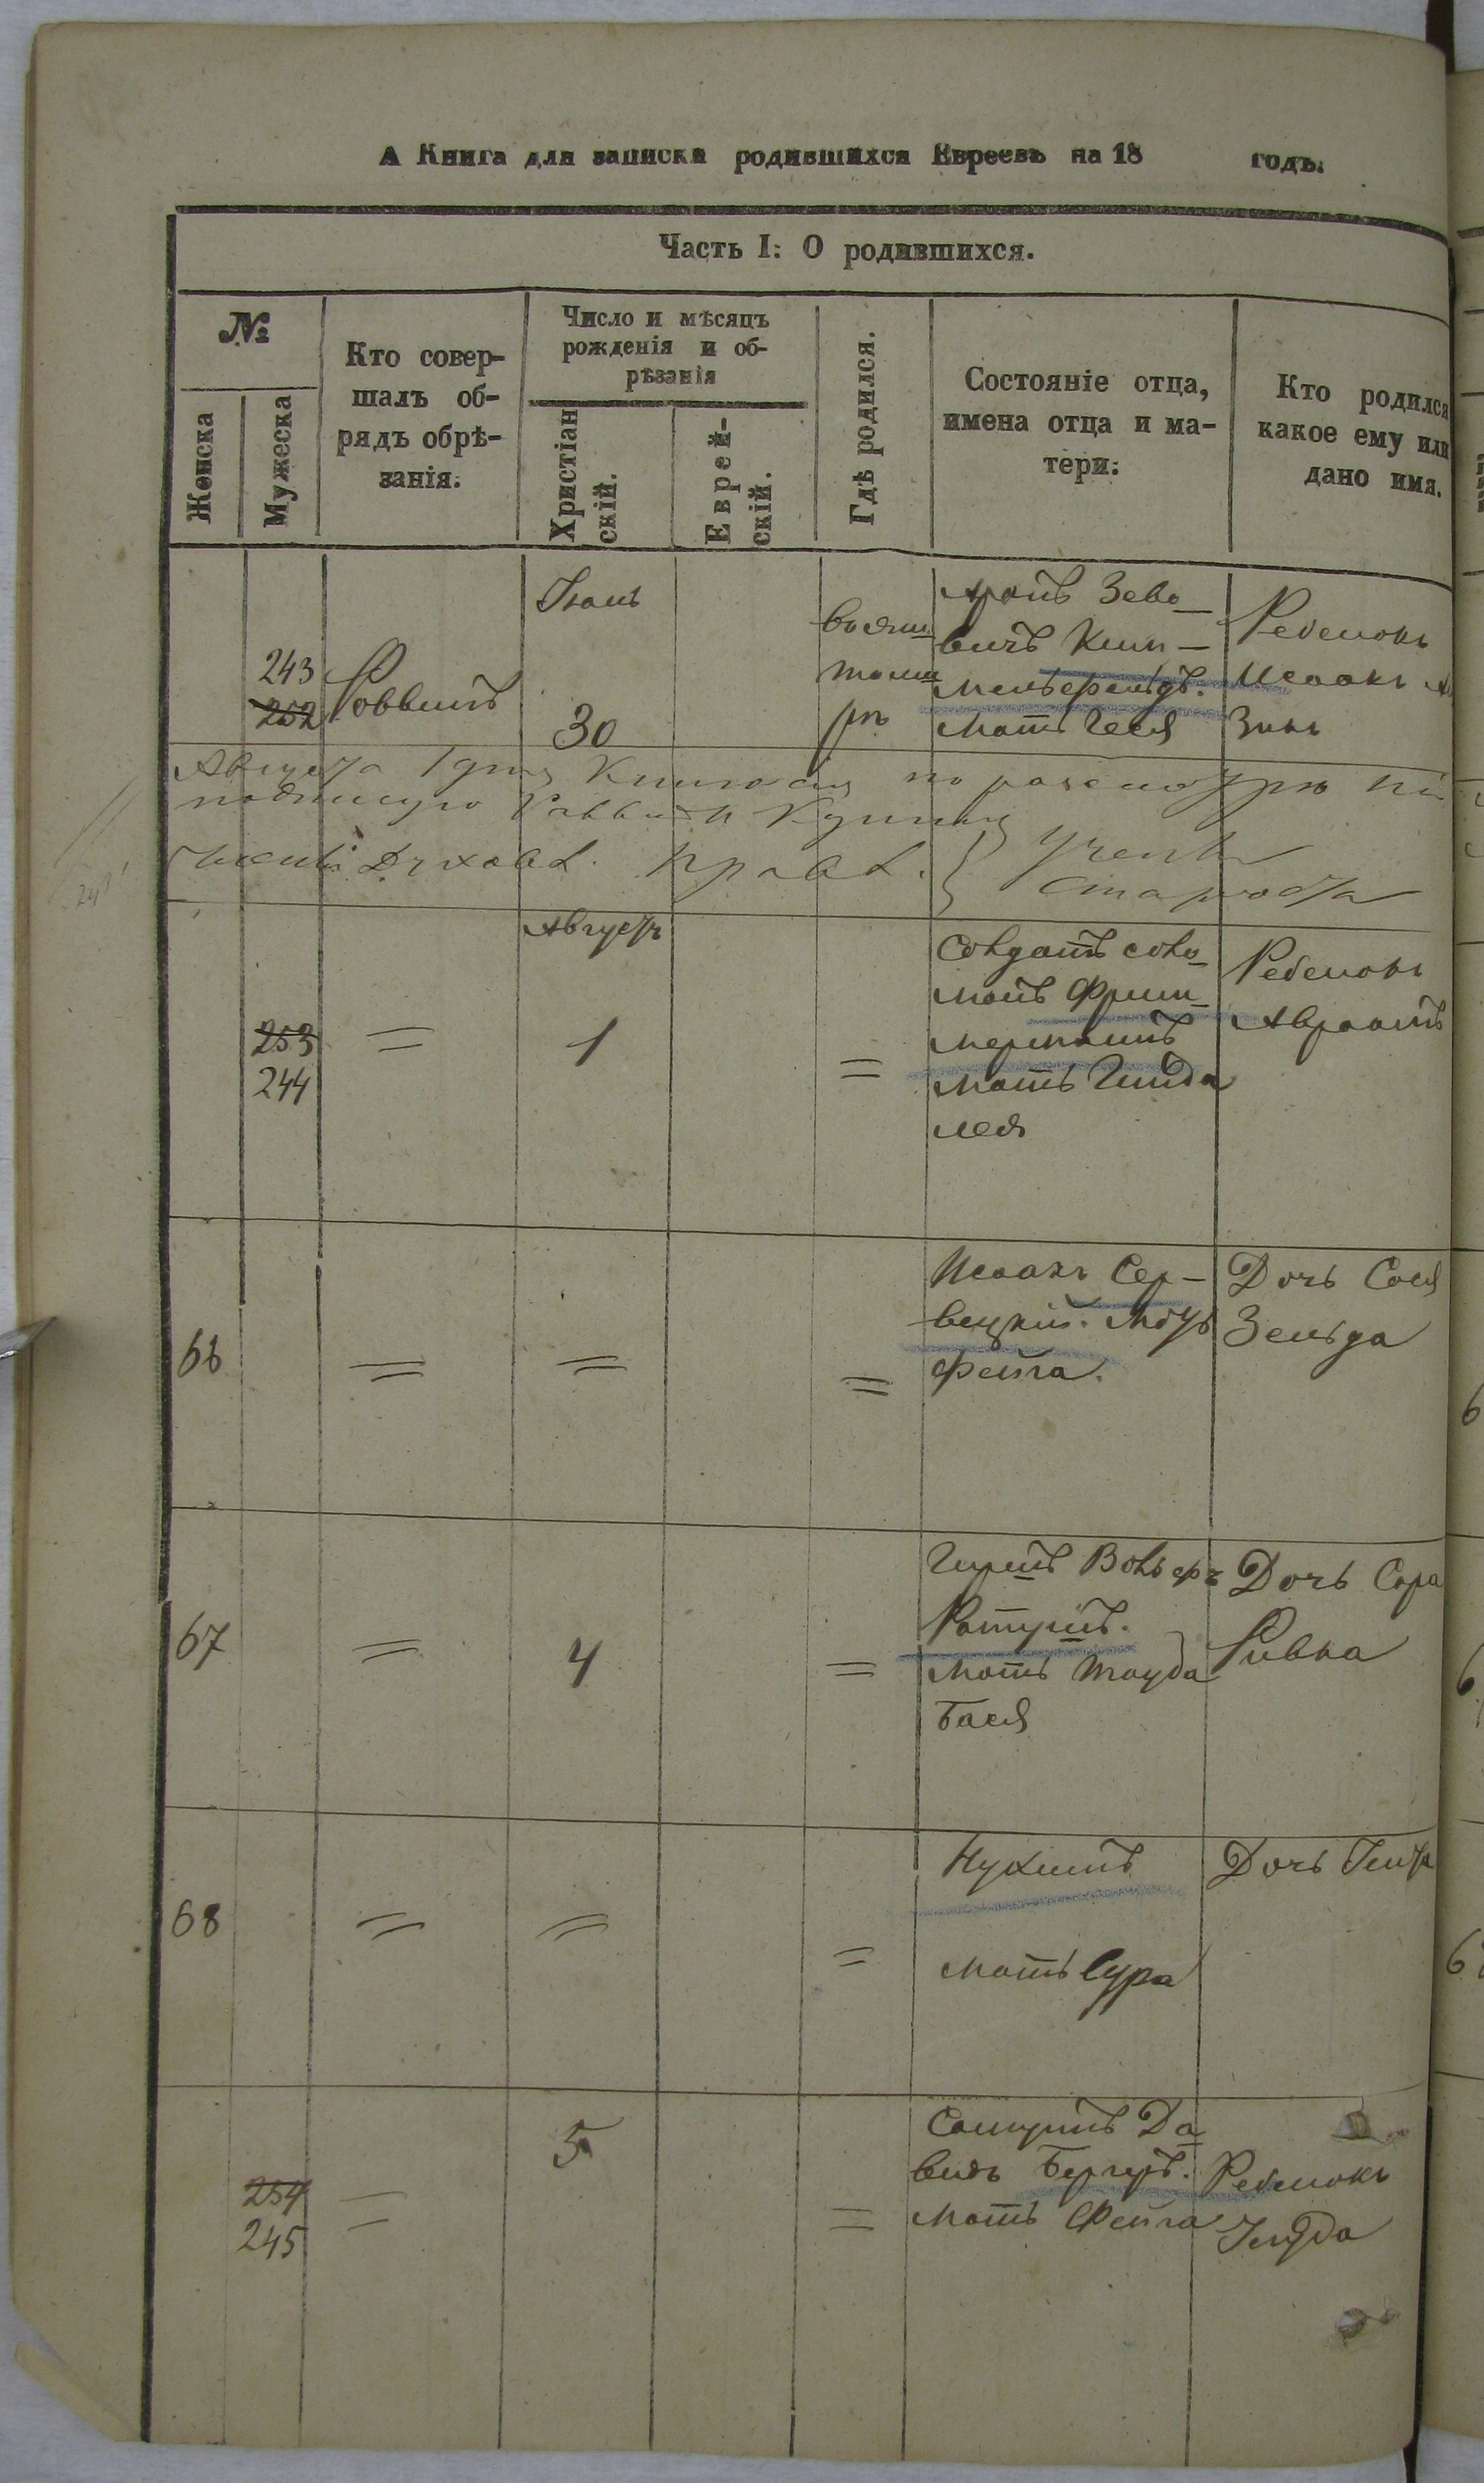 А Книга для записки родившихся Евреевъ на 18 годъ.
Часть I: О родившихся.
№
Женска
Мужеска
Кто совер-
шалъ об-
рядъ обрѣ-
занія.
Число и мѣсяцъ
рожденія и об-
рѣзанія
Христіан
скій.
Еврей-
скій.
Гдѣ родился.
Состояніе отца,
имена отца и ма-
тери:
Кто родился
какое ему или
дано имя.
243
252
Раввинъ
30
Аронъ Зево-
вичъ
Мать Геся
Ребенокъ
Исаакъ
Августа 1 дня Книга сія по разсмотрѣ
Раввинъ
Духовн. Правл.
Учений
Староста
Августъ
253
244
=
1
=
Солдатъ Соло-
монъ Фрим-
Мать
Лея
Ребенокъ
Авраамъ
66
=
=
=
Исаакъ Сер-
вецкій. Мать
Фейга.
Дочь Сося
Зельда
67
=
4
=
Гиршъ Вольфъ
Мать Тауба
Бася
Дочь Сора
Ривка
68
=
=
=
Нухимъ
Мать Сура
Дочь
254
245
=
5
=
Самуилъ Да-
видъ Бергеръ.
Мать Фейга
Ребенокъ